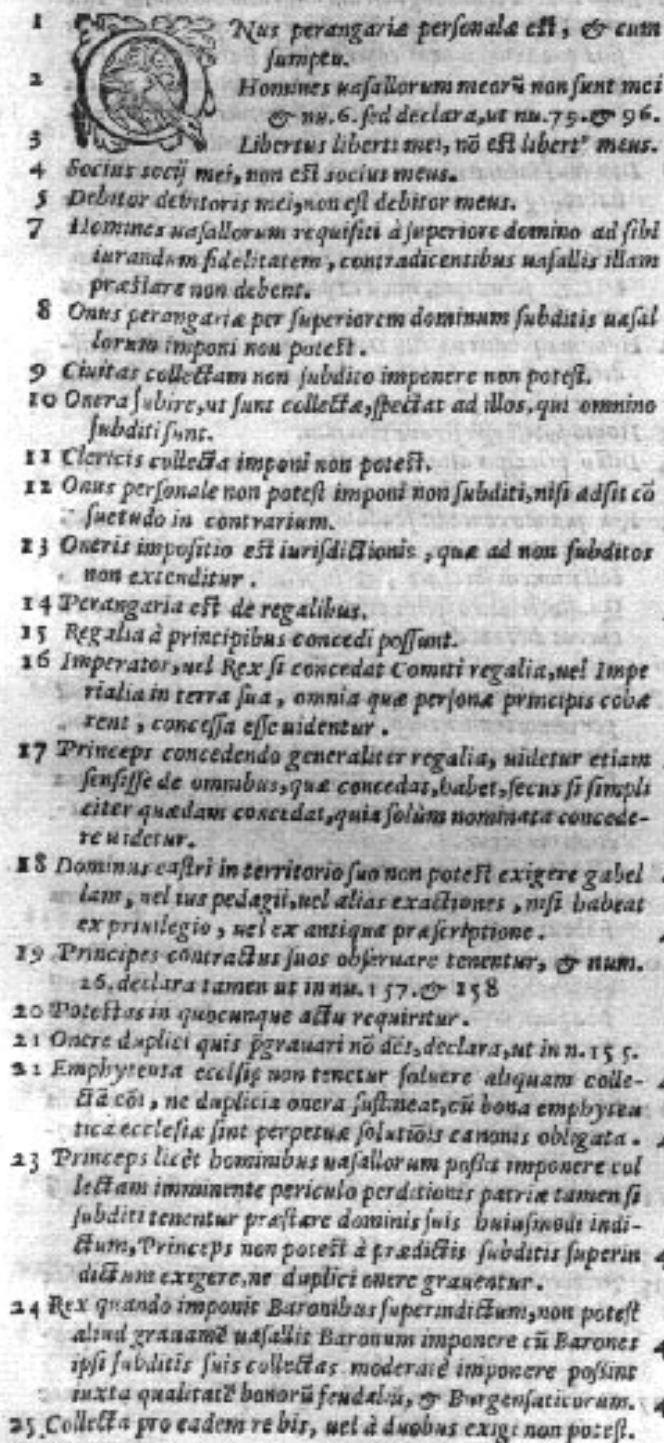 1 ONus perangariæ personalæ est, & cum
sumptu.
2 Homines uasallorum meorũ non sunt mei
& nu. 6. sed declara, ut nu. 79. & 96.
3 Libertus liberti mei, nõ est libertꝰ meus.
4 Socius socij mei, non est socius meus.
5 Debitor debitoris mei, non est debitor meus.
7 Homines uasallorum requisiti à superiore domino ad sibi
iurandum fidelitatem, contradicentibus uasallis illam
præstare non debent.
8 Onus perangariæ per superiorem dominum subditis uasal
lorum imponi non potest.
9 Ciuitas collectam non subdito imponere non potest.
10 Onera subire, ut sunt collectæ, spectat ad illos, qui omnino
subditi sunt.
11 Clericis collecta imponi non potest.
12 Onus personale non potest imponi non subditi, nisi adsit cõ
suetudo in contrarium.
13 Oneris impositio est iurisdictionis, quæ ad non subditos
non extenditur.
14 Perangaria est de regalibus.
15 Regalia à principibus concedi possunt.
16 Imperator, uel Rex si concedat Comiti regalia, uel Impe
rialia in terra sua, omnia quæ personæ principis cohæ
rent, concessa esse uidentur.
17 Princeps concedendo generaliter regalia, uidetur etiam
sensisse de omnibus, quæ concedat, habet, secus si simpli
citer quædam concedat, quia solùm nominata concede-
re uidetur.
18 Dominus castri in territorio suo non potest exigere gabel
lam, uel ius pedagii, uel alias exactiones, nisi habeat
ex priuilegio, uel ex antiqua præscriptione.
19 Principes contractus suos obseruare tenentur, & num.
26. declara tamen ut in nu. 157. & 158
20 Potestas in quocunque actu requiritur.
21 Onere duplici quis p̱grauari nõ dẽt, declara, ut in n. 155.
22 Emphyteuta ecclesię non tenetur soluere aliquam colle-
ctã cõi, ne duplicia onera sustineat, cũ bona emphyteu
tica ecclesiæ sint perpetuæ solutiõis canonis obligata.
23 Princeps licèt hominibus uasallorum possit imponere col
lectam imminente periculo perditionis patriæ tamen si
subditi tenentur præstare dominis suis huiusmodi indi-
ctum, Princeps non potest à prædictis subditis superin
dictum exigere, ne duplici onere grauentur.
24 Rex quando imponit Baronibus superindictum, non potest
aliud grauamẽ uasallis Baronum imponere cũ Barones
ipsi subditis suis collectas moderatè imponere possint
iuxta qualitatẽ bonorũ feudaliũ, & Burgensaticorum.
25 Collecta pro eadem re bis, uel à duobus exigi non potest.